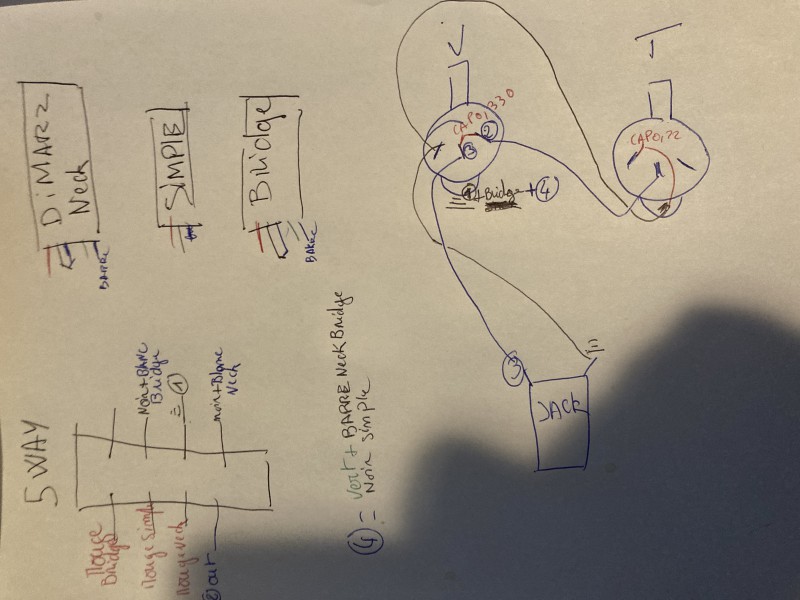 DiMARZ
Neck
SIMPLE
BRidge
BARRE
BARRE
V
T
CAPO,330
②
③
① + Bridge + ④
CAPO,22
5 WAY
Noir+BlANC
Bridge
①
noir+Blanc
Neck
Rouge
Bridge
Rouge Simple
Rouge Neck
② out
④ = Vert + BARRE Neck Bridge
Noir Simple
③
JACK